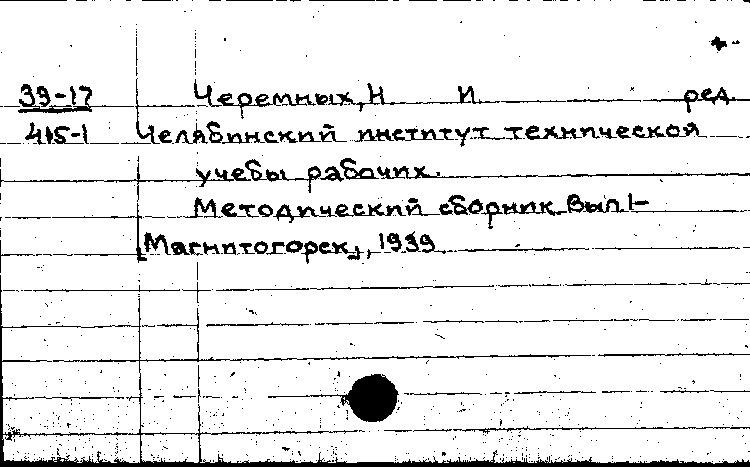 39-17 Черемных, Н. И. ред.
415-1 Челябинский институт технической
учебы рабочих.
Методический сборник. Вып. 1-
[Магнитогорск], 1939.